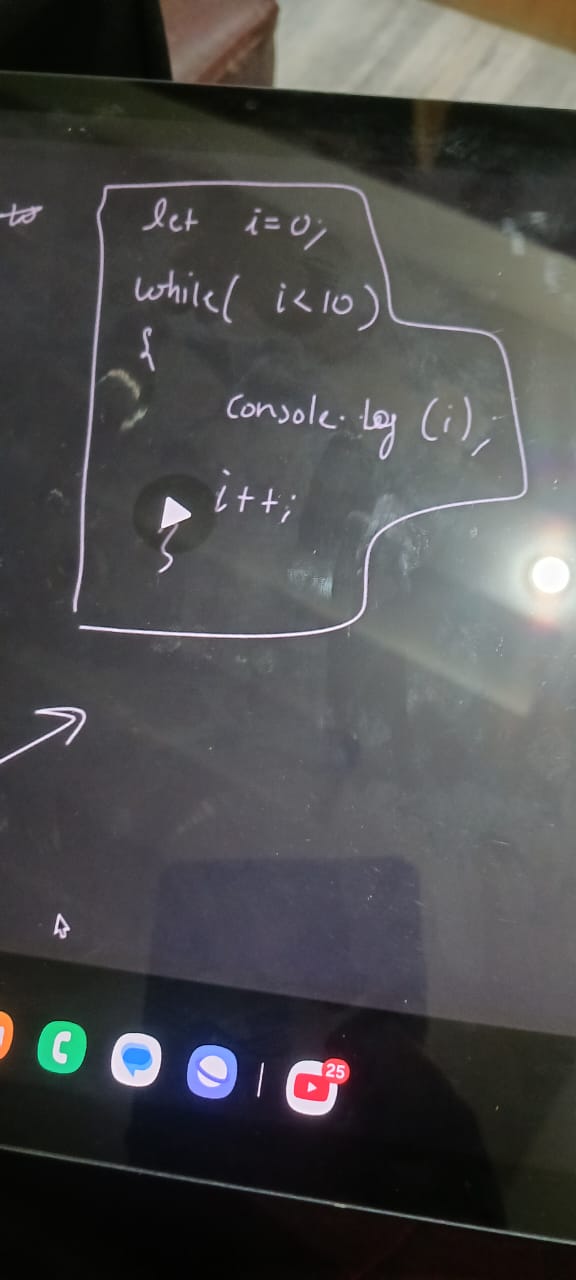 to
let i=0;
while( i<10)
{
console.log (i);
i++;
}
25